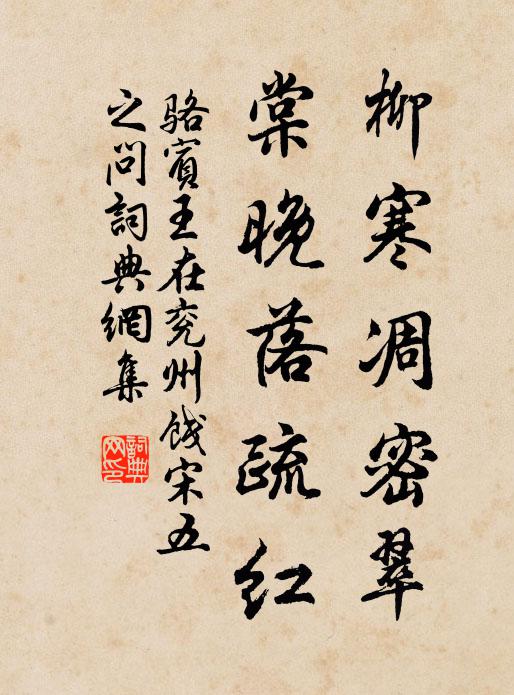 柳寒凋密翠
棠晚落疏红
骆宾王在兖州饯宋五
之问词典网集
词典网印